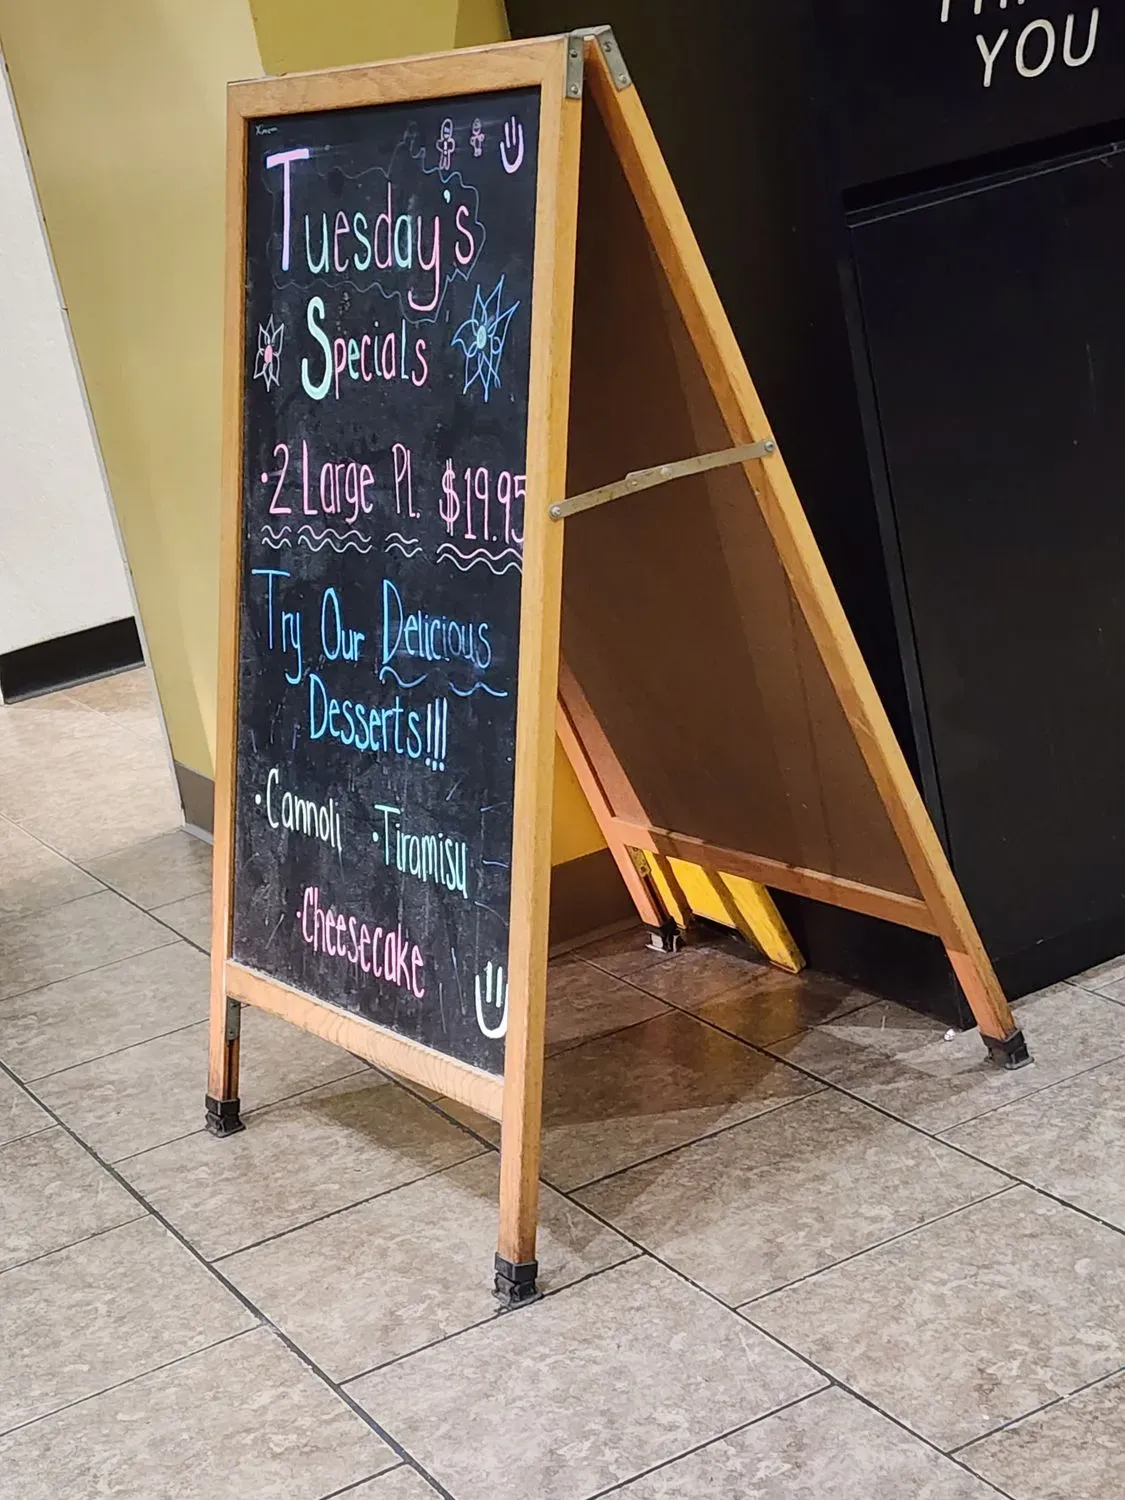 Tuesday's
Specials
• 2 Large Pl. $19.95
Try Our Delicious
Desserts!!!
• Cannoli • Tiramisu
• Cheesecake
YOU